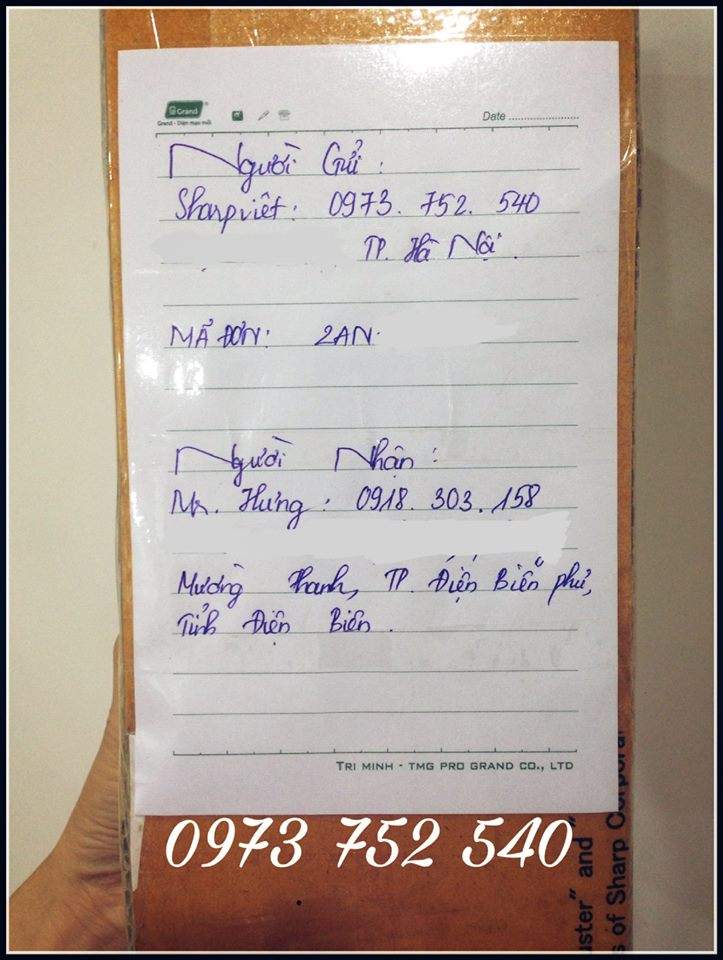 Grand
Grand - Diện mạo mới
Date
Người Gửi:
Sharpviêt: 0973. 752. 540
TP. Hà Nội.
MÃ ĐƠN: 2AN
Người Nhận:
Mr. Hưng: 0918. 303. 158
Mường Thanh, TP. Điện Biên phủ,
Tỉnh Điện Biên.
TRI MINH - TMG PRO GRAND CO., LTD
0973 752 540
uster" and "
s of Sharp Corporat